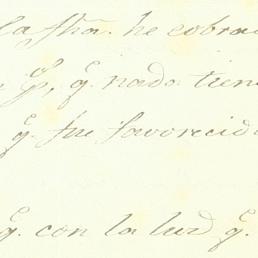 la fha. he cobrad
q. nada tien
q. fue favorecid
q. con la luz q.